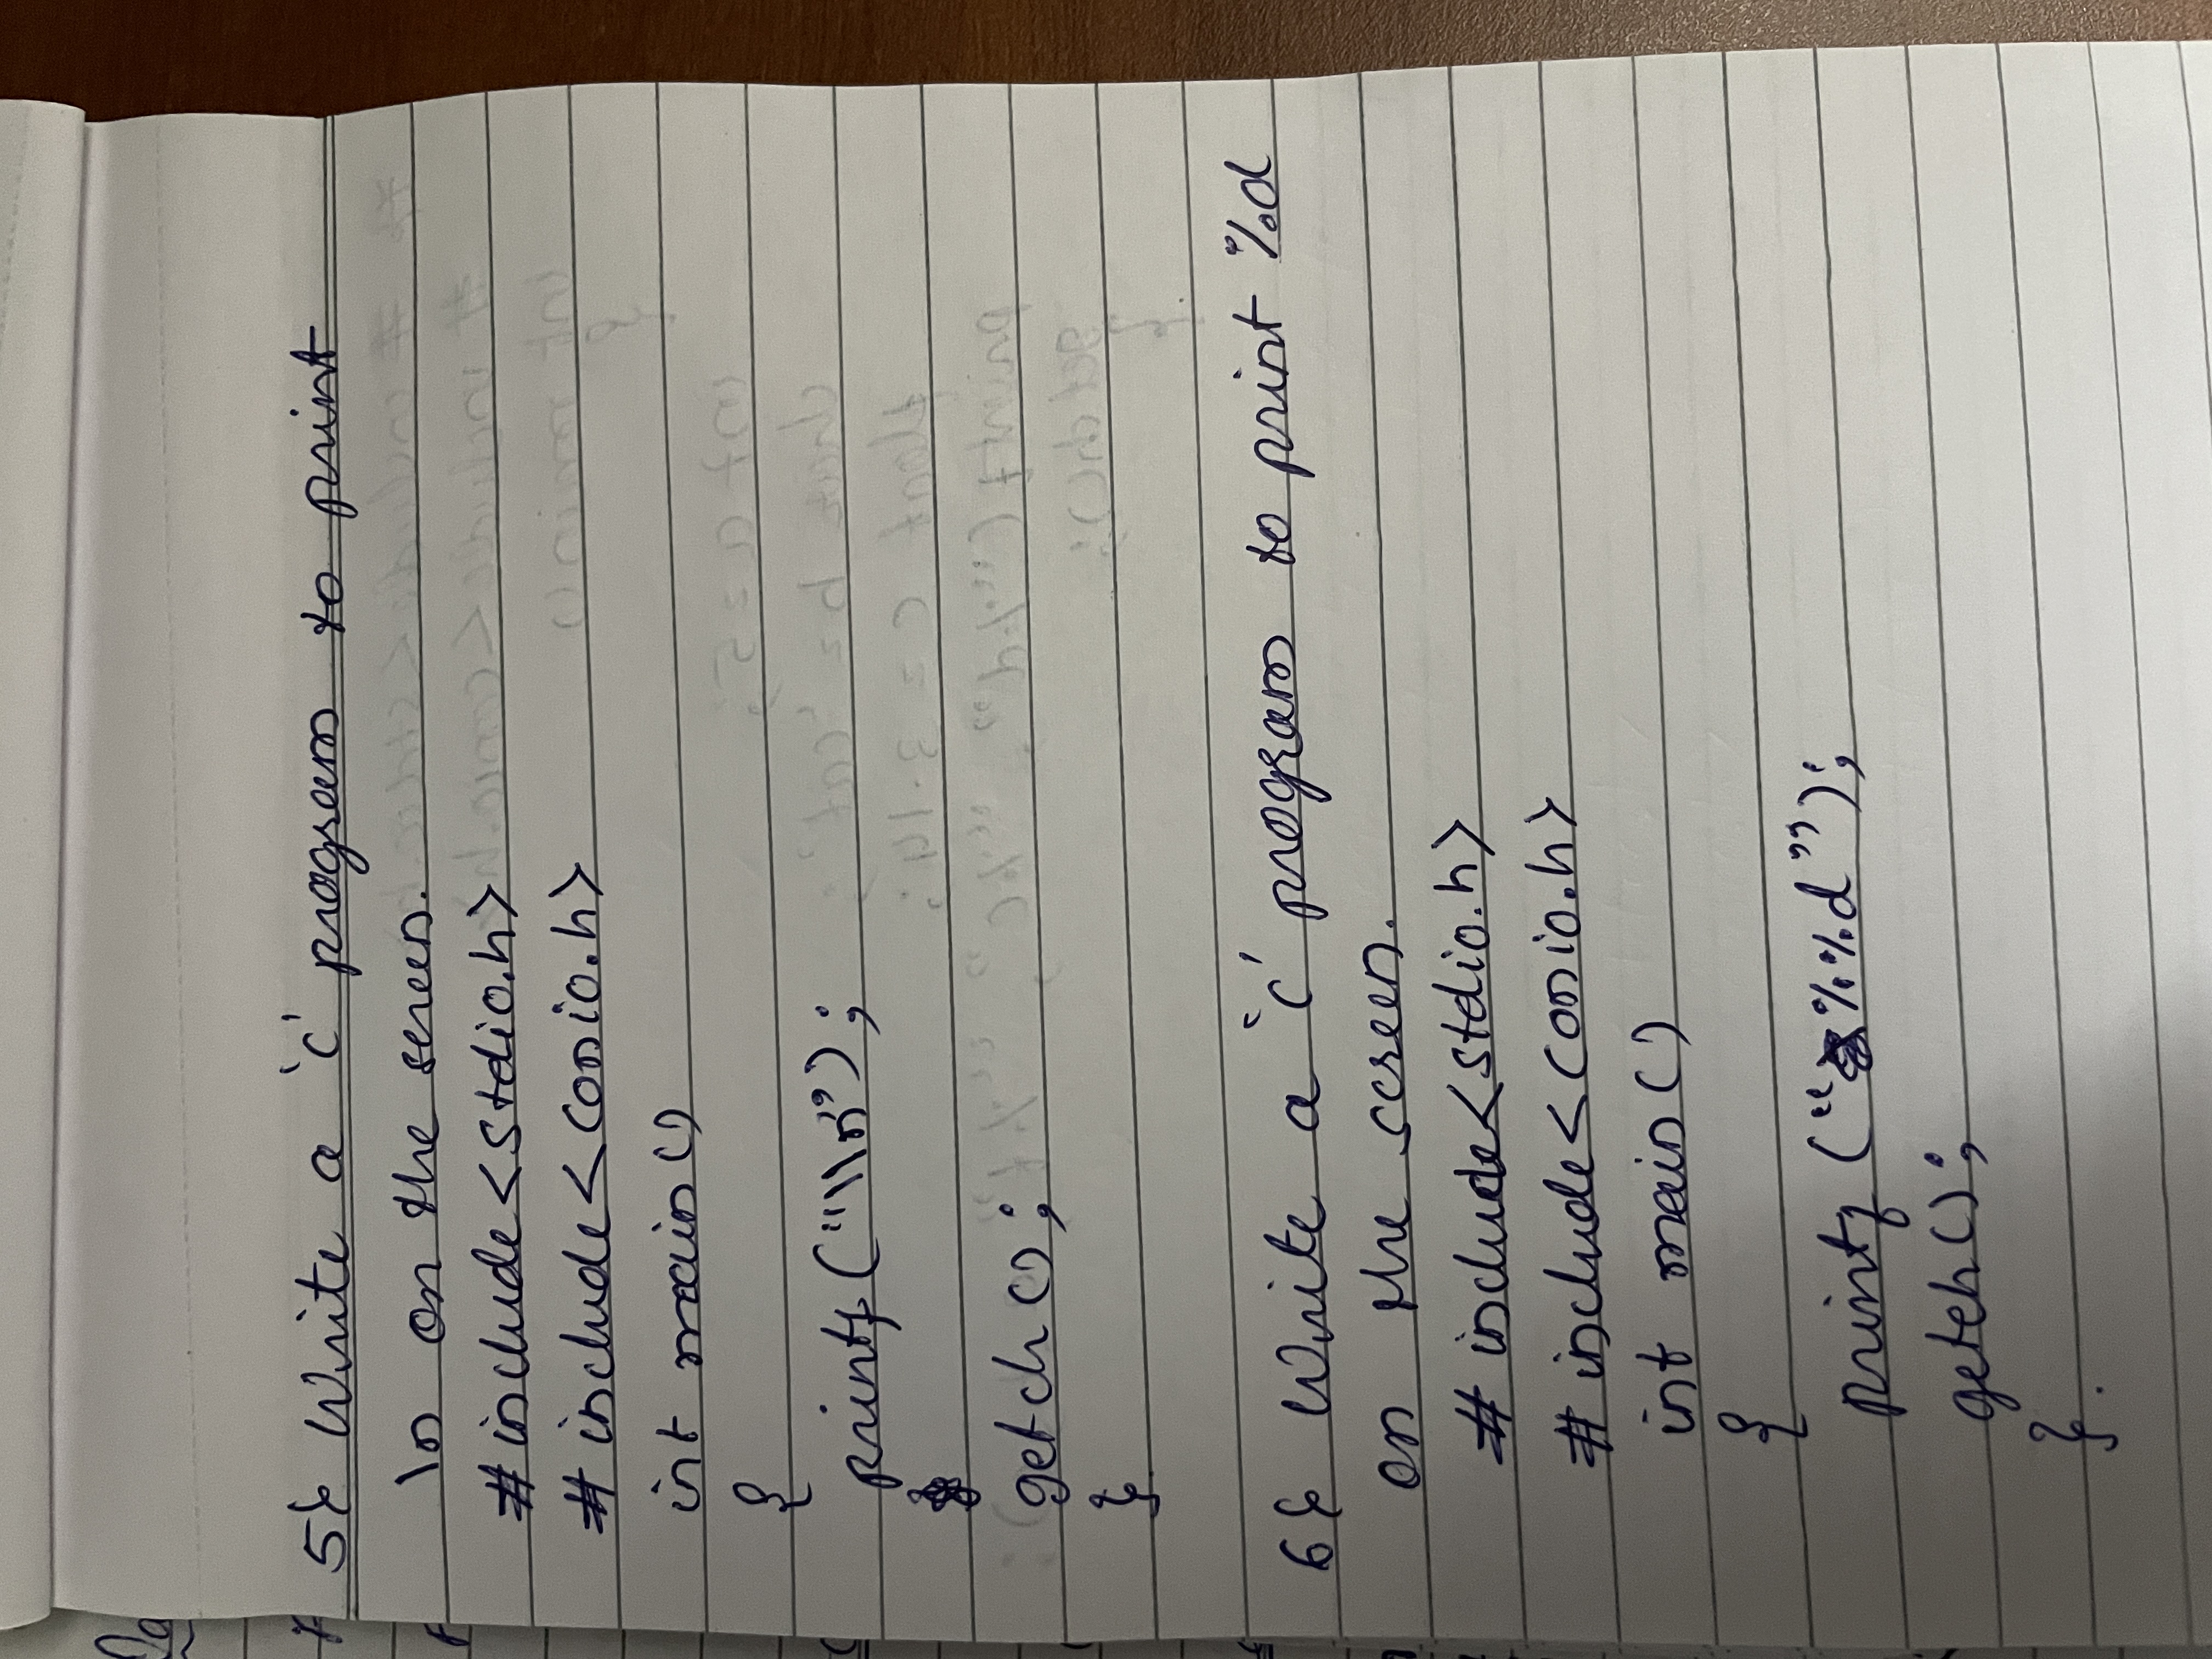 5) Write a 'C' program to print
\n on the screen.
#include<stdio.h>
#include<conio.h>
int main()
{
printf("\\n");
getch();
}
6) Write a 'C' program to print %d
on the screen.
# include<stdio.h>
# include<conio.h>
int main()
{
printf("%%d");
getch();
}.